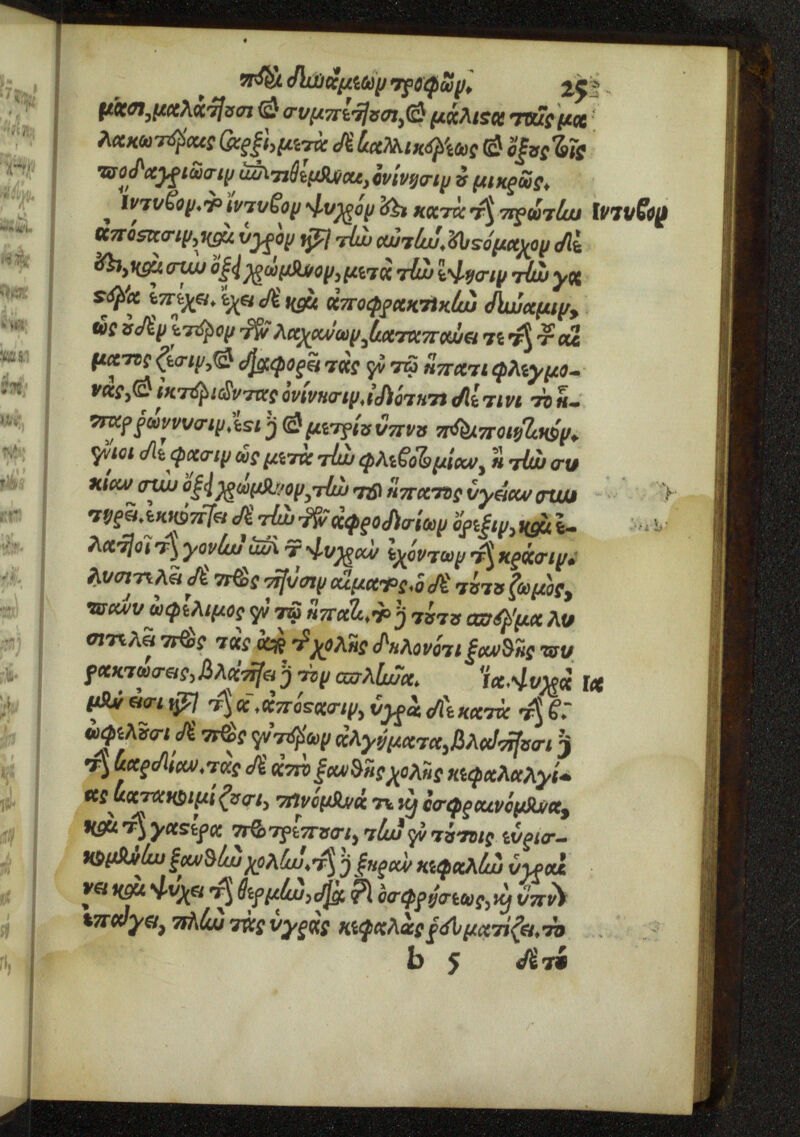 περὶ δυνάμεων τροφῶν. 25
μασι, μαλάττουσι καὶ συμπέττουσι, καὶ μάλιστα τοὺς μα
λακωτέρους σαρξὶ, μετὰ δὲ καλλικρέεως καὶ ὄξους τοῖς
ποδαγριῶσιν ἐπιτιθέμεναι, ὀνίνησιν οὐ μικρῶς.
Ἴντυβον. τὸ ἴντυβον ψυχρόν ἐστι κατὰ τὴν πρώτην Ἴντυβον
ἀπόστασιν, καὶ ὑγρὸν κατὰ τὴν αὐτὴν. εὐστόμαχον δέ
ἐστι, καὶ σὺν ὄξει χρώμενον, μετὰ τὴν ἕψησιν τὴν γα
στέρα ἐπέχει. ἔχει δὲ καὶ ἀποφρακτικὴν δύναμιν,
ὡς οὐδὲν ἕτερον τῶν λαχάνων, καταπαύει τε τὴν τοῦ αἵ
ματος ζέσιν, καὶ διαφορεῖ τὰς ἐν τῷ ἥπατι φλεγμο-
νάς, καὶ ἰκτεριῶντας ὀνίνησιν. ἰδιότητι δέ τινι τὸ ἧ-
παρ ῥώννυσιν. ἔστι δὲ καὶ μετρίου ὕπνου περιποιητικόν.
ἔνιοι δέ φασιν ὡς μετὰ τὴν φλεβοτομίαν, ἢ τὴν συ
κίαν σὺν ὄξει χρώμενον, τὴν τοῦ ἥπατος ὑγείαν συν
τηρεῖ. ἐκκόπτει δὲ τὴν τῶν ἀφροδισίων ὄρεξιν, καὶ ἐ-
λαττοῖ τὴν γονὴν ἐπὶ τῶν ψυχρὰν ἐχόντων τὴν κρᾶσιν.
λυσιτελεῖ δὲ πρὸς πτύσιν αἵματος. ὁ δὲ τούτου ζωμὸς,
πάνυ ὠφέλιμος ἐν τῷ ἥπατι. τὸ δὲ τούτου σπέρμα λυ
σιτελεῖ πρὸς τὰς ἀπὸ τῆς χολῆς δηλονότι ξανθῆς πυ
ρακτώσεις, βλάπτει δὲ τὸν σπλῆνα. Ἴα. ψυχρὰ Ἴα
μέν εἰσι κατὰ τὴν α. ἀπόστασιν, ὑγρὰ δὲ κατὰ τὴν β.
ὠφελοῦσι δὲ πρὸς ἐντέρων ἀλγήματα, βλάπτουσι δὲ
τὴν καρδίαν. τὰς δὲ ἀπὸ ξανθῆς χολῆς κεφαλαλγί-
ας κατακοιμίζουσι, πινόμενά τε καὶ ὀσφραινόμενα,
καὶ τὴν γαστέρα προτρέπουσι, τὴν ἐν τούτοις εὑρισ-
κομένην ξανθὴν χολήν. τὴν δὲ ξηρὰν κεφαλὴν ὑγραί
νει καὶ ψύχει τὴν θερμὴν, διὰ τῆς ὀσφρήσεως, καὶ ὕπνον
ἐπάγει, πλὴν τὰς ὑγρὰς κεφαλὰς ῥευματίζει. τὸ
b 5 δὲ τού